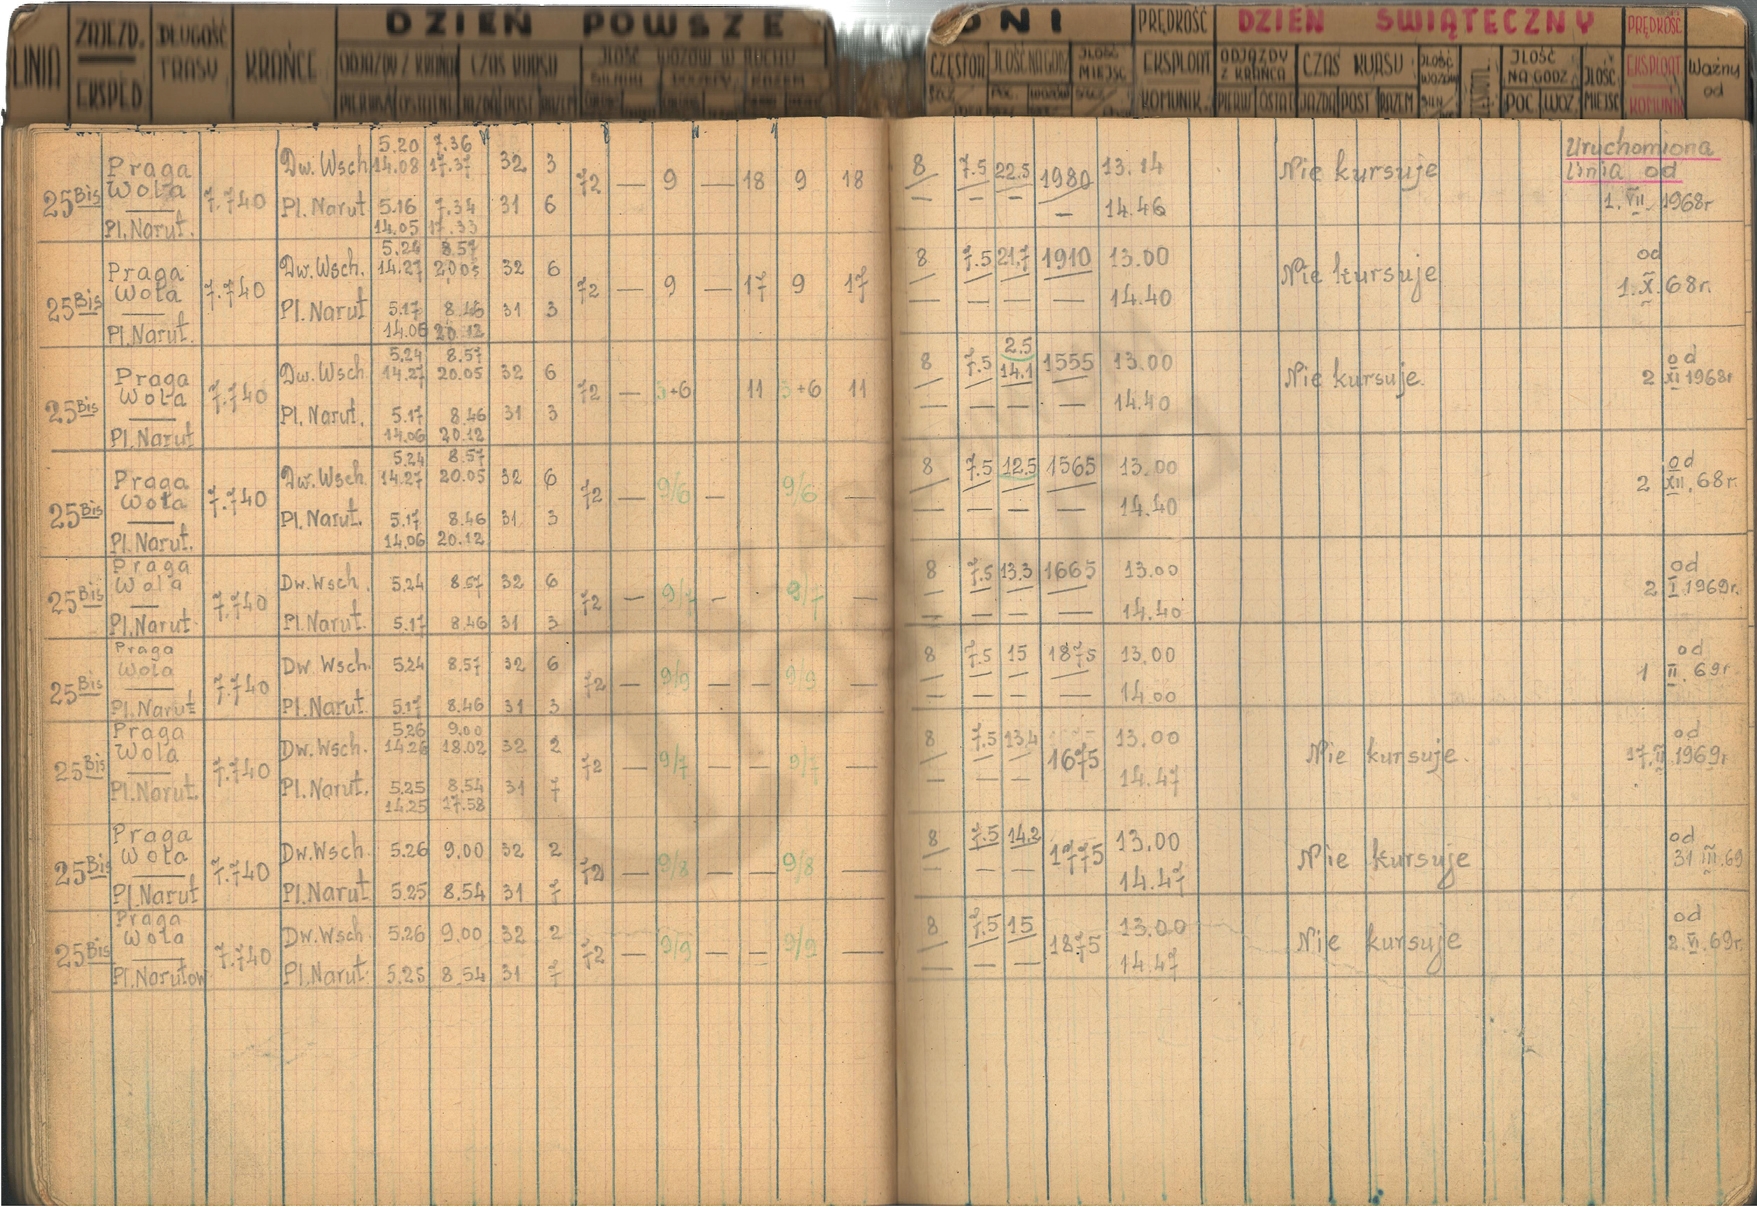 DZIEŃ POWSZEDNI
DZIEŃ ŚWIĄTECZNY
LINIA
ZAJEZD.
EKSPED.
DŁUGOŚĆ
TRASY
KRAŃCE
ODJAZDY Z KRAŃCA
CZAS KURSU
PRĘDKOŚĆ
EKSPLOAT
KOMUNIK.
ODJAZDY
Z KRAŃCA
CZAS KURSU
PIERW OSTAT JAZDA POST RAZEM
JLOŚĆ
NA GODZ
POC. WOZ.
JLOŚĆ
MIEJSC
PRĘDKOŚĆ
EKSPLOAT
KOMUNIK
Ważny
od
25 Bis Praga Wola Pl. Narut. 7.740
Dw. Wsch 5.20 7.36 14.08 17.37 32 3
Pl. Narut 5.16 7.34 14.05 17.33 31 6
72 — 9 — 18 9 18
8 7.5 22.5 1980 13.14
— — — — 14.46
Nie kursuje
Uruchomiona
linia od
1. VII. 1968r
25 Bis Praga Wola Pl. Narut. 7.740
Dw. Wsch. 5.24 8.57 14.27 20.05 32 6
Pl. Narut 5.17 8.46 14.06 20.12 31 3
72 — 9 — 17 9 17
8 7.5 21.7 1910 13.00
— — — — 14.40
Nie kursuje
od
1. X. 68r.
25 Bis Praga Wola Pl. Narut 7.740
Dw. Wsch 5.24 8.57 14.27 20.05 32 6
Pl. Narut. 5.17 8.46 14.06 20.12 31 3
72 — 5+6 11 5+6 11
8 7.5 2.5 14.1 1555 13.00
— — — — 14.40
Nie kursuje.
od
2 XI 1968r
25 Bis Praga Wola Pl. Narut. 7.740
Dw. Wsch. 5.24 8.57 14.27 20.05 32 6
Pl. Narut. 5.17 8.46 14.06 20.12 31 3
72 — 9/6 — 9/6 —
8 7.5 12.5 1565 13.00
— — — — 14.40
od
2 XII. 68r.
25 Bis Praga Wola Pl. Narut 7.740
Dw. Wsch. 5.24 8.57 32 6
Pl. Narut. 5.17 8.46 31 3
72 — 9/7 — 9/7 —
8 7.5 13.3 1665 13.00
— — — — 14.40
od
2 I 1969r.
25 Bis Praga Wola Pl. Narut 7.740
Dw. Wsch. 5.24 8.57 32 6
Pl. Narut. 5.17 8.46 31 3
72 — 9/9 — — 9/9 —
8 7.5 15 1875 13.00
— — — — 14.00
od
1 II. 69r
25 Bis Praga Wola Pl. Narut. 7.740
Dw. Wsch. 5.26 9.00 14.26 18.02 32 2
Pl. Narut. 5.25 8.54 14.25 17.58 31 7
72 — 9/7 — — 9/7 —
8 7.5 13.4 1675 13.00
— — — 14.47
Nie kursuje.
od
17. II 1969r
25 Bis Praga Wola Pl. Narut 7.740
Dw. Wsch. 5.26 9.00 32 2
Pl. Narut 5.25 8.54 31 7
72 — 9/8 — — 9/8 —
8 7.5 14.2 1775 13.00
— — — 14.47
Nie kursuje
od
31 III. 69
25 Bis Praga Wola Pl. Narutow 7.740
Dw. Wsch. 5.26 9.00 32 2
Pl. Narut. 5.25 8.54 31 7
72 — 9/9 — — 9/9 —
8 7.5 15 1875 13.00
— — — 14.47
Nie kursuje
od
2. VI. 69r.